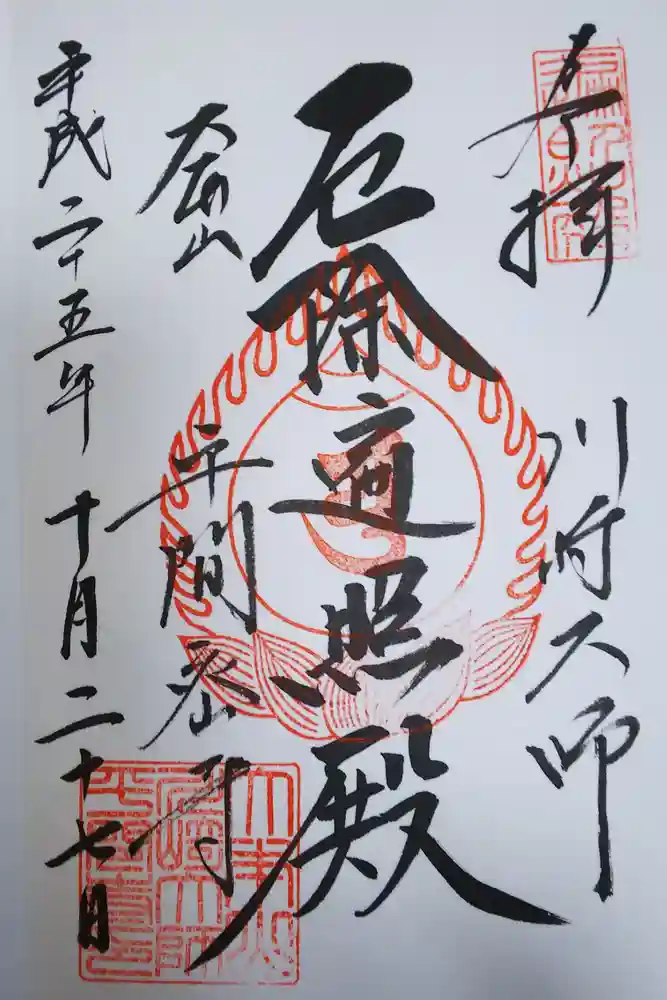 奉拝
川崎大師
厄除遍照殿
大本山
平間寺
平成二十五年十月二十七日